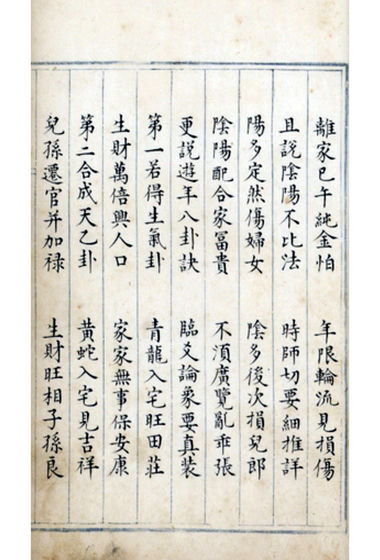 離家巳午純金怕　年限輪流見損傷
且說陰陽不比法　時師切要細推詳
陽多定然傷婦女　陰多後次損兒郎
陰陽配合家冨貴　不湏廣覽亂乖張
更説遊年八卦訣　臨爻論象要真装
第一若得生氣卦　青龍入宅旺田莊
生財萬倍興人口　家家無事保安康
第二合成天乙卦　黄蛇入宅見吉祥
兒孫遷官并加禄　生財旺相子孫良